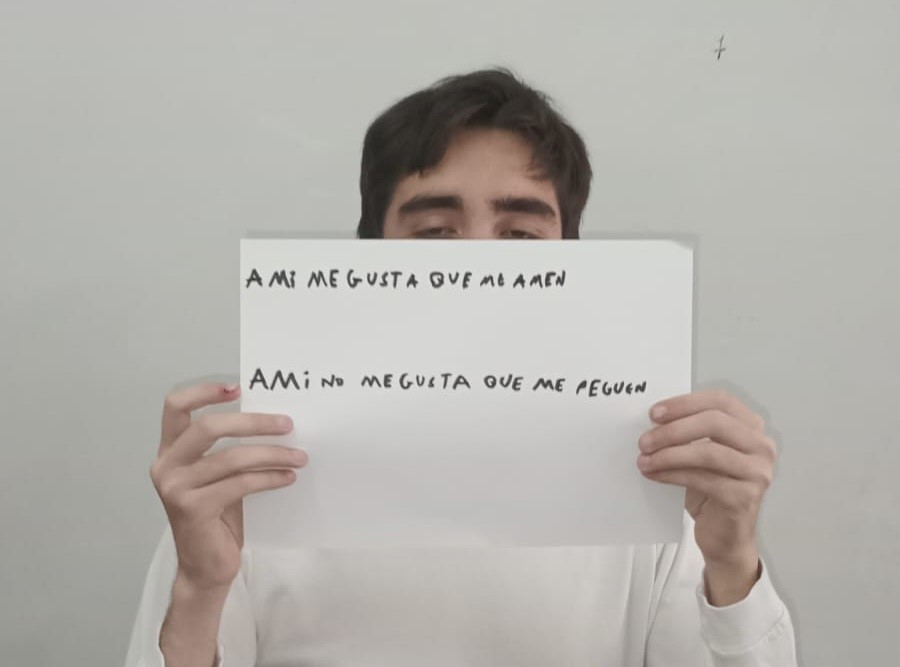 A Mi ME GUSTA QUE ME AMEN
A Mi NO ME GUSTA QUE ME PEGUEN